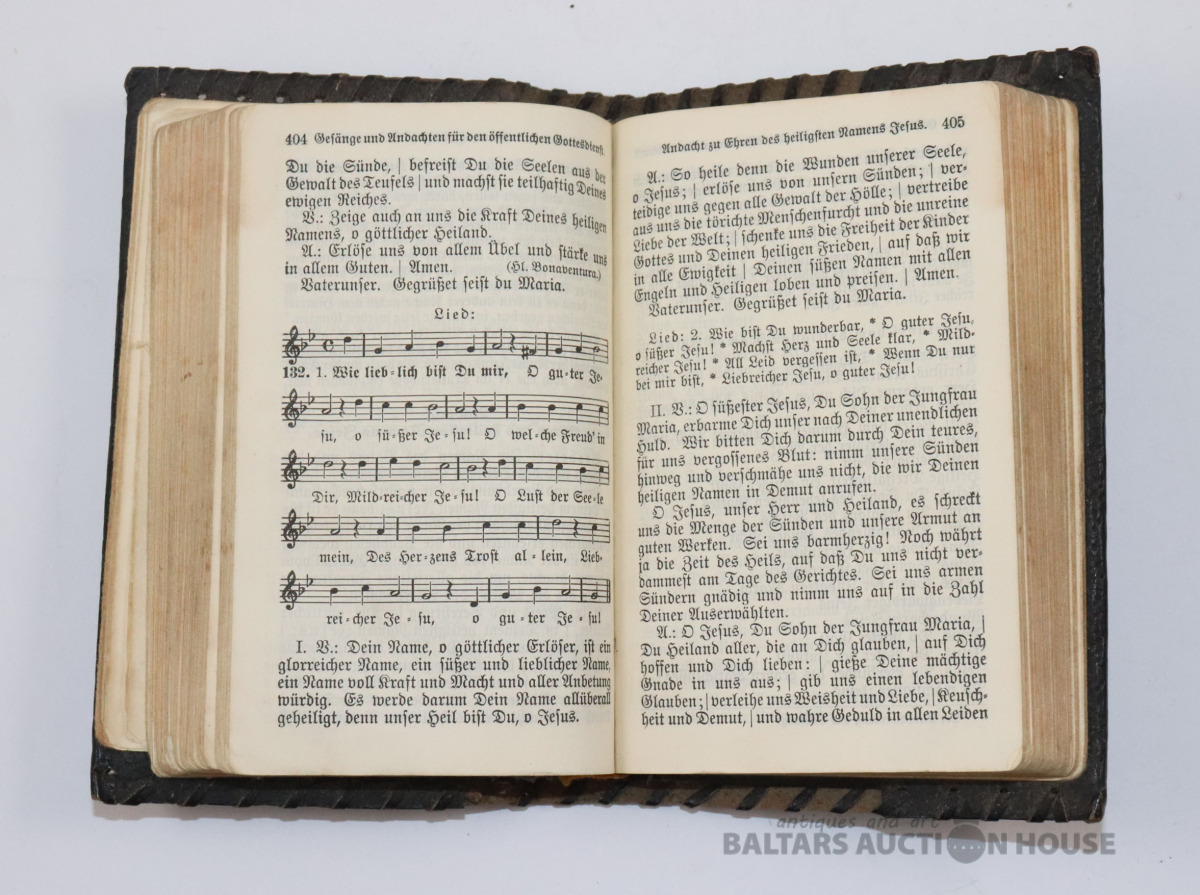 404 Gesänge und Andachten für den öffentlichen Gottesdienst.
Du die Sünde, | befreist Du die Seelen aus der
Gewalt des Teufels | und machst sie teilhaftig Deines
ewigen Reiches.
V.: Zeige auch an uns die Kraft Deines heiligen
Namens, o göttlicher Heiland.
A.: Erlöse uns von allem Übel und stärke uns
in allem Guten. | Amen. (Hl. Bonaventura.)
Vaterunser. Gegrüßet seist du Maria.
Lied:
132. 1. Wie lieb-lich bist Du mir, O gu-ter Je-
su, o sü-ßer Je-su! O wel-che Freud' in
Dir, Mild-rei-cher Je-su! O Lust der See-le
mein, Des Her-zens Trost al-lein, Lieb-
rei-cher Je-su, o gu-ter Je-su!
I. V.: Dein Name, o göttlicher Erlöser, ist ein
glorreicher Name, ein süßer und lieblicher Name,
ein Name voll Kraft und Macht und aller Anbetung
würdig. Es werde darum Dein Name allüberall
geheiligt, denn unser Heil bist Du, o Jesus.
Andacht zu Ehren des heiligsten Namens Jesus. 405
A.: So heile denn die Wunden unserer Seele,
o Jesus; | erlöse uns von unsern Sünden; | ver-
teidige uns gegen alle Gewalt der Hölle; | vertreibe
aus uns die törichte Menschenfurcht und die unreine
Liebe der Welt; | schenke uns die Freiheit der Kinder
Gottes und Deinen heiligen Frieden, | auf daß wir
in alle Ewigkeit | Deinen süßen Namen mit allen
Engeln und Heiligen loben und preisen. | Amen.
Vaterunser. Gegrüßet seist du Maria.
Lied: 2. Wie bist Du wunderbar, * O guter Jesu,
o süßer Jesu! * Machst Herz und Seele klar, * Mild-
reicher Jesu! * All Leid vergessen ist, * Wenn Du nur
bei mir bist, * Liebreicher Jesu, o guter Jesu!
II. V.: O süßester Jesus, Du Sohn der Jungfrau
Maria, erbarme Dich unser nach Deiner unendlichen
Huld. Wir bitten Dich darum durch Dein teures,
für uns vergossenes Blut: nimm unsere Sünden
hinweg und verschmähe uns nicht, die wir Deinen
heiligen Namen in Demut anrufen.
O Jesus, unser Herr und Heiland, es schreckt
uns die Menge der Sünden und unsere Armut an
guten Werken. Sei uns barmherzig! Noch währt
ja die Zeit des Heils, auf daß Du uns nicht ver-
dammest am Tage des Gerichtes. Sei uns armen
Sündern gnädig und nimm uns auf in die Zahl
Deiner Auserwählten.
A.: O Jesus, Du Sohn der Jungfrau Maria, |
Du Heiland aller, die an Dich glauben, | auf Dich
hoffen und Dich lieben: | gieße Deine mächtige
Gnade in uns aus; | gib uns einen lebendigen
Glauben; | verleihe uns Weisheit und Liebe, | Keusch-
heit und Demut, | und wahre Geduld in allen Leiden
antiques and art
BALTARS AUCTION HOUSE